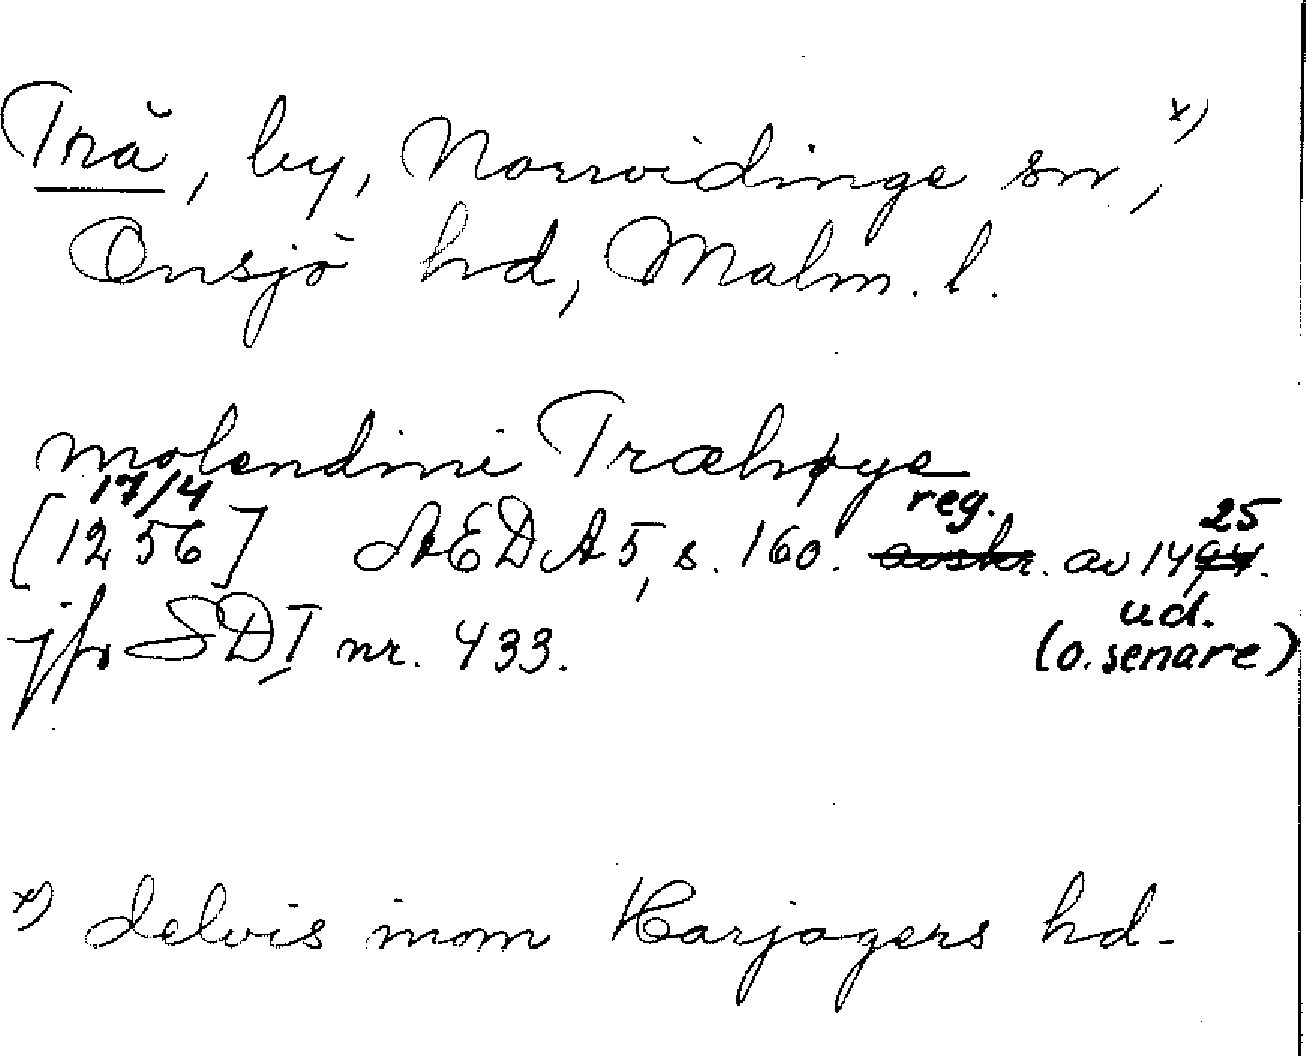 Trä, by, Norrvidinge sn, x)
Onsjö hd, Malm. l.
molendini Træhøye
17/4 reg. 25
[1256] AEDA 5, s. 160. avskr. av 1494.
ud.
jfr SD I nr. 433. (o. senare)
x) delvis inom Harjagers hd.